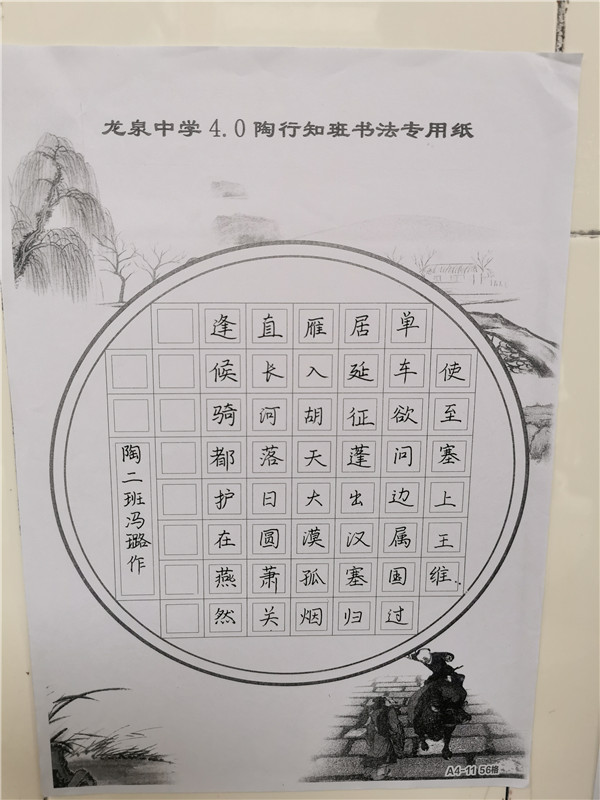 龙泉中学4.0陶行知班书法专用纸
使至塞上王维
单车欲问边属国过
居延征蓬出汉塞归
雁入胡天大漠孤烟
直长河落日圆萧关
逢候骑都护在燕然
陶二班冯璐作
A4-11 56格